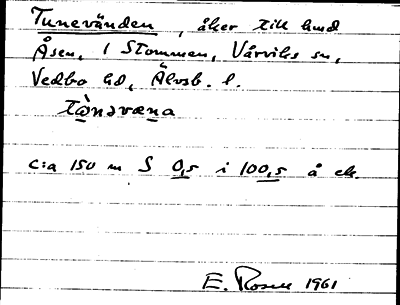 Tunevänden, åker till hmd
Åsen, 1 Stommen, Vårviks sn,
Vedbo hd, Älvsb. l.
tὼnəvæna
c:a 150 m S 0,5 i 100,5 å ek.
E. Rosell 1961